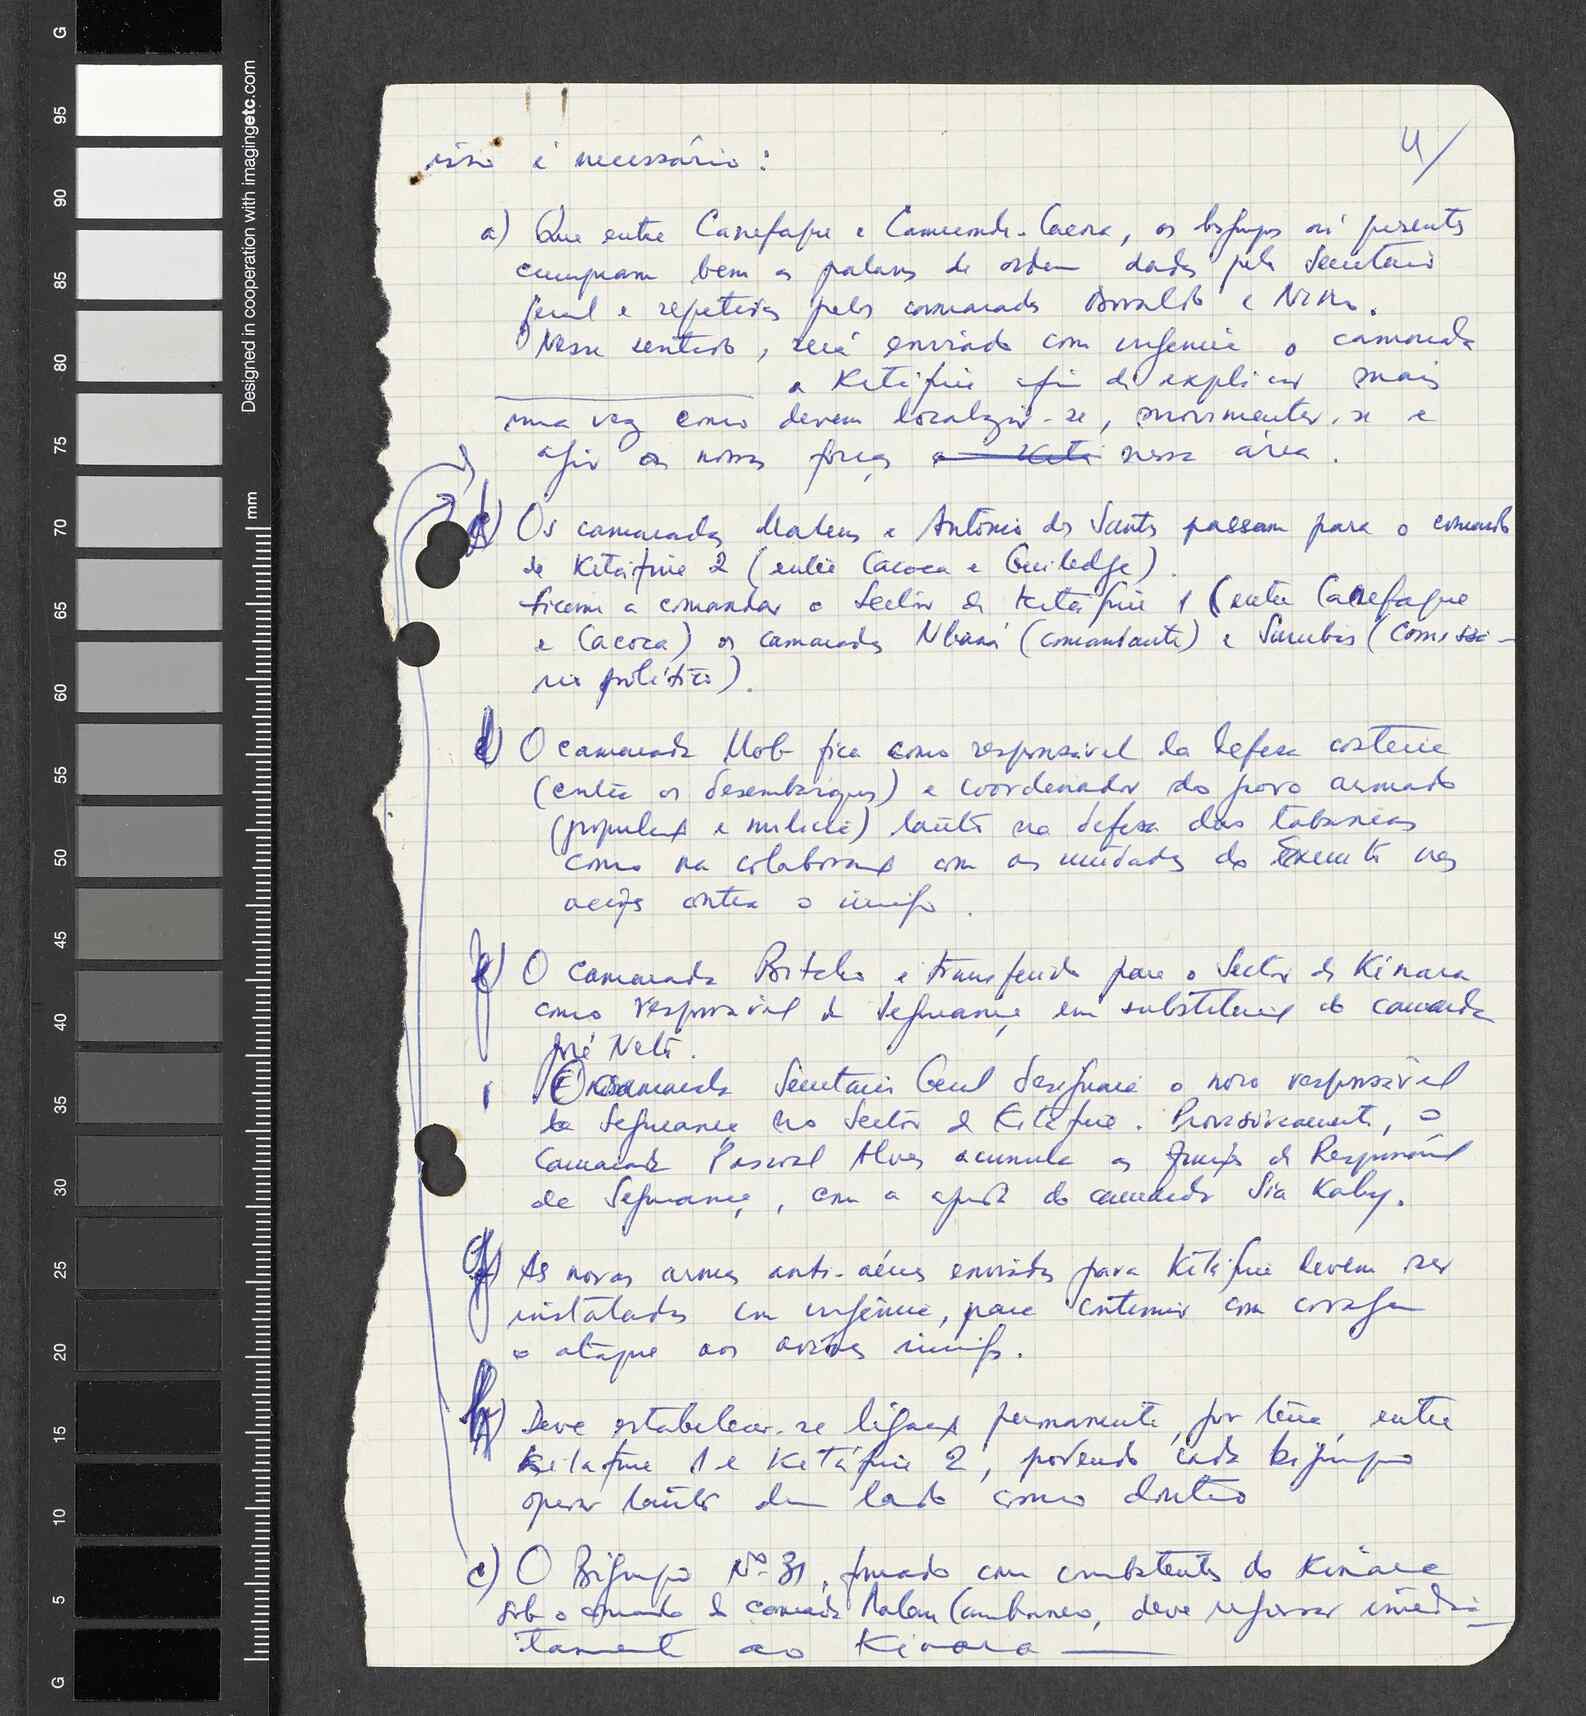 4/
isso é necessário:
a) Que entre Canefaque e Cameconde-Cacoca, os bigrupos aí presentes
cumpram bem as palavras de ordem dadas pelo Secretário
Geral e repetidas pelos camaradas Osvaldo e Nino.
Nesse sentido, será enviado com urgência o camarada
a Kitáfine afim de explicar mais
uma vez como devem localizar-se, movimentar-se e
agir as nossas forças a Kitá nessa área.
Os camaradas e António dos Santos passam para o comando
de Kitáfine 2 (entre Cacoca e Guiledge).
Ficam a comandar o Sector de Kitáfine 1 (entre Canefaque
e Cacoca) os camaradas Nbaná (comandante) e (Comissá-
rio político).
O camarada fica como responsável da defesa costeira
(contra os desembarques) e coordenador do povo armado
(população e milícia) tanto na defesa das tabancas
como na colaboração com as unidades do Exército nas
acções contra o inimigo.
O camarada Botcho é transferido para o Sector de Kinara
como responsável de Segurança em substituição do camarada
José Neto.
O camarada Secretário Geral designará o novo responsável
da Segurança no Sector de Kitáfine. Provisoriamente, o
Camarada Pascoal Alves acumula as funções de Responsável
de Segurança, com a ajuda do camarada Sia Kaby.
As novas armas anti-aéreas enviadas para Kitáfine devem ser
instaladas com urgência, para continuar com coragem
o ataque aos aviões inimigos.
h) Deve estabelecer-se ligação permanente, por terra, entre
Kitáfine 1 e Kitáfine 2, podendo cada bigrupo
operar tanto dum lado como doutro
c) O Bigrupo Nº 31, formado com combatentes do Kinara
sob o comando do camarada Malam Cambaneo, deve regressar imedia-
tamente ao Kinara
Designed in cooperation with imagingetc.com
mm
G
95
90
85
80
75
70
65
60
55
50
45
40
35
30
25
20
15
10
5
G